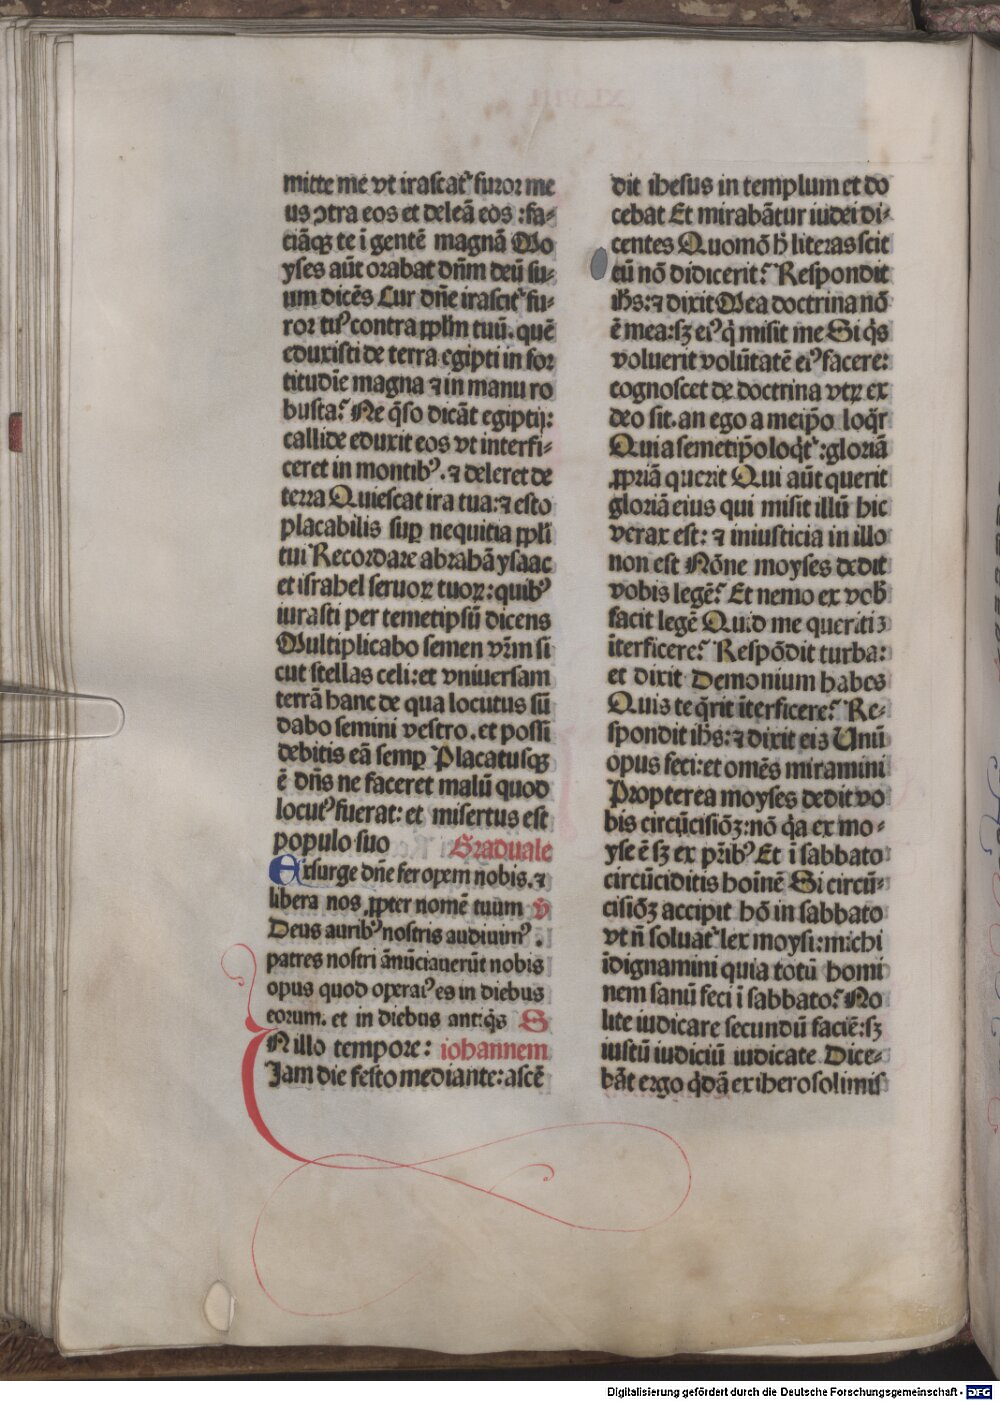 mitte me vt irascatᷣ furor me
us ꝯtra eos et deleā eos :fa⸗
ciāqꝫ te ī gentē magnā Mo
yses aūt orabat dn̄m deū su⸗
um dicēs Cur dn̄e irascitᷣ fu⸗
ror tuꝰ contra ꝓplm̄ tuū. quē
eduxisti de terra egipti in for
titudīe magna ⁊ in manu ro
busta? Ne q̄so dicāt egiptij:
callide eduxit eos vt interfi⸗
ceret in montibꝰ. ⁊ deleret de
terra Quiescat ira tua: ⁊ esto
placabilis suꝑ nequitia ꝓpli̅
tui Recordare abrabā ysaac
et israhel seruoꝝ tuoꝝ: quibꝰ
iurasti per temetipsū dicens
Multiplicabo semen vr̄m si
cut stellas celi: et vniuersam
terrā hanc de qua locutus sū
dabo semini vestro. et possi
debitis eā semꝑ Placatusqꝫ
ē dn̄s ne faceret malū quod
locutꝰ fuerat: et misertus est
populo suo Graduale
Exsurge dn̄e fer opem nobis. ⁊
libera nos ꝓpter nomē tuum v̄
Deus auribꝰ nostris audiuimꝰ .
patres nostri ānūciauerūt nobis
opus quod operatꝰ es in diebus
eorum. et in diebus antiq̄s S
IN illo tempore: iohannem
Jam die festo mediante: ascē
dit ihesus in templum et do
cebat Et mirabātur iudei di⸗
centes Quomō h̄ literas scit
cū nō didicerit? Respondit
ih̄s: ⁊ dixit Mea doctrina nō
ē mea: sꝫ eiꝰ q̄ misit me Si q̄s
voluerit volūtatē eiꝰ facere:
cognoscet de doctrina vtꝝ ex
deo sit. an ego a meip̄o loq̄r
Qui a semetip̄o loqtᷣ: gloriā
ꝓpriā querit Qui aūt querit
gloriā eius qui misit illū hic
verax est: ⁊ iniusticia in illo
non est Nōne moyses dedit
vobis legē? Et nemo ex vob̄
facit legē Quid me queritis
īterficere? Respōdit turba:
et dixit Demonium habes
Quis te q̄rit īterficere? Re⸗
spondit ih̄s: ⁊ dixit eis Unū
opus feci: et omēs miramini
Propterea moyses dedit vo
bis circūcisiōꝫ: nō q̄a ex mo⸗
yse ē sꝫ ex pr̄ibꝰ Et ī sabbato
circūciditis hoīnē Si circū⸗
cisiōꝫ accipit hō in sabbato
vt n̄ soluatᷣ lex moysi: michi
īdignamini quia totū homi
nem sanū feci ī sabbato? No
lite iudicare secundū faciē: sꝫ
iustū iudiciū iudicate Dice⸗
bāt ergo q̄dā ex iherosolimis
Digitalisierung gefördert durch die Deutsche Forschungsgemeinschaft - DFG